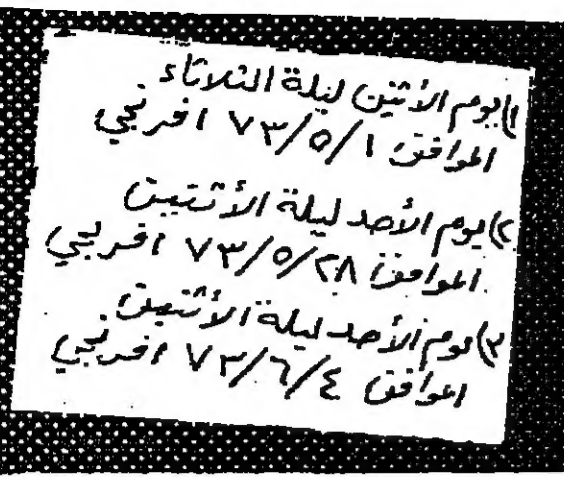 ١) يوم الأثنين ليلة الثلاثاء
الموافق ٧٣/٥/١ افرنجي
٢) يوم الأحد ليلة الأثنين
الموافق ٧٣/٥/٢٨ افرنجي
٣) يوم الأحد ليلة الأثنين
الموافق ٧٣/٦/٤ افرنجي